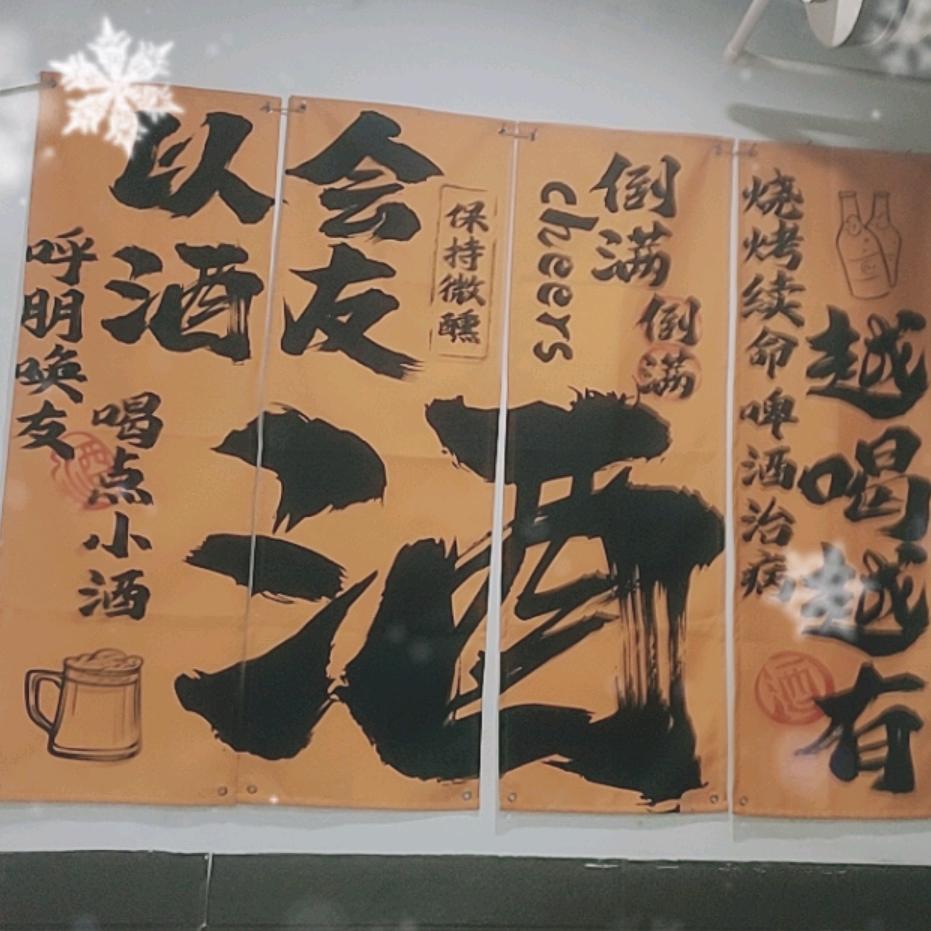 以酒
会友
呼朋唤友
喝点小酒
酒
保持微醺
酒
cheers
倒满
倒满
烧烤续命啤酒治病
越喝越有
酒